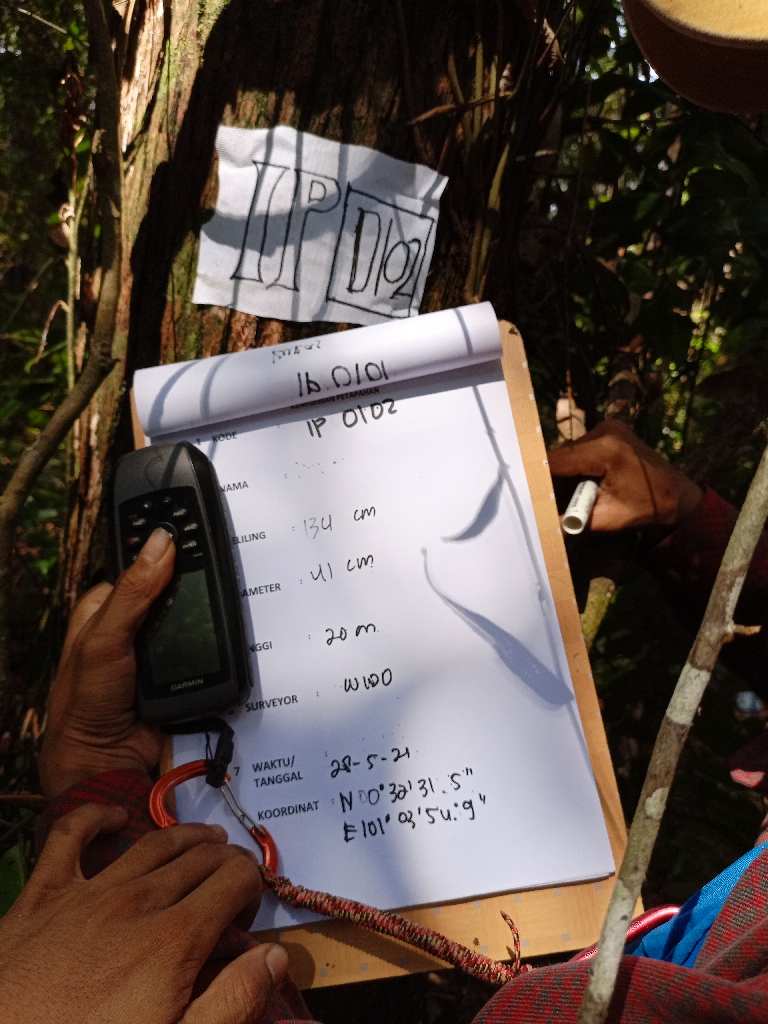 IP 0102
IP 0101
KENEGERIAN PETAPAHAN
KODE : IP 0102
NAMA :
ELILING : 134 cm
AMETER : 41 cm
NGGI : 20 m
SURVEYOR : WIDO
7 WAKTU/ TANGGAL : 28-5-21
KOORDINAT : N 00° 32' 31.5"
E 101° 03' 54.9"
GARMIN